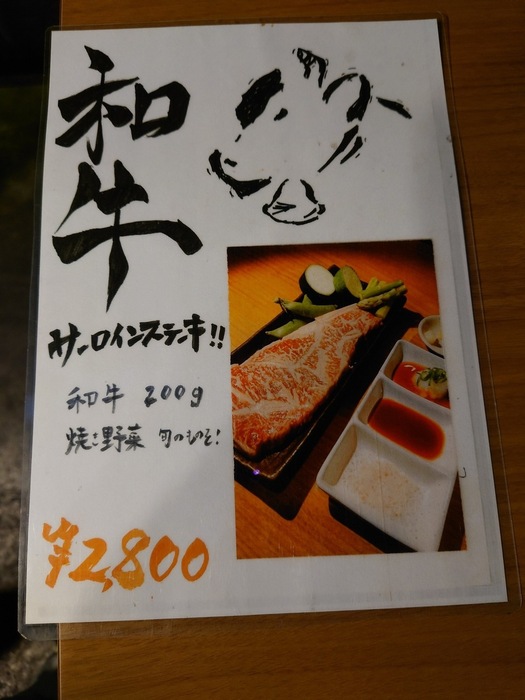 和牛
サーロインステーキ!!
和牛 200g
焼き野菜 旬のものを!
¥2,800